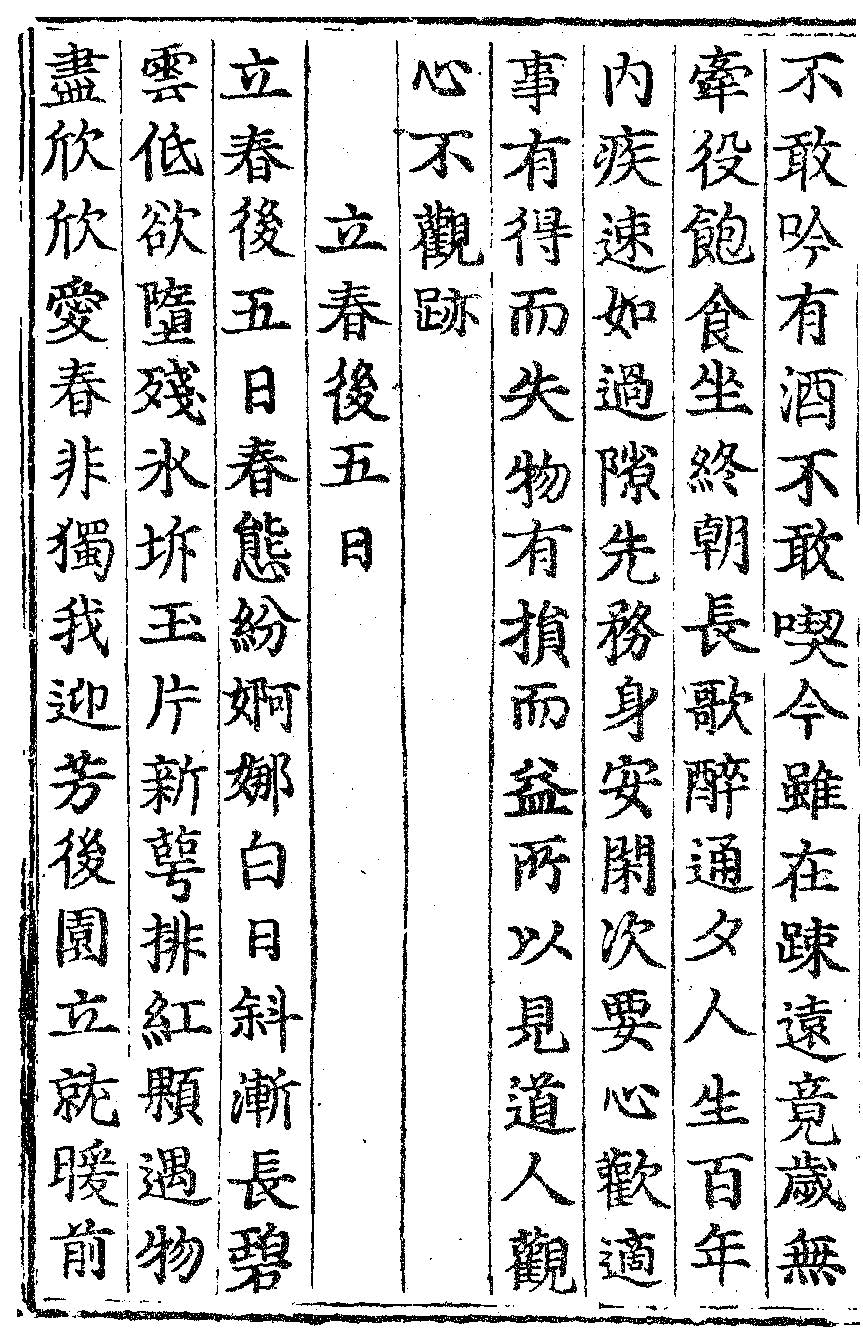 不敢吟有酒不敢喫今雖在踈遠竟歲無
牽役飽食坐終朝長歌醉通夕人生百年
内疾速如過隙先務身安閑次要心歡適
事有得而失物有損而益所以見道人觀
心不觀跡
立春後五日
立春後五日春態紛婀娜白日斜漸長碧
雲低欲墮殘氷坼玉片新萼排紅顆遇物
盡欣欣愛春非獨我迎芳後園立就暖前